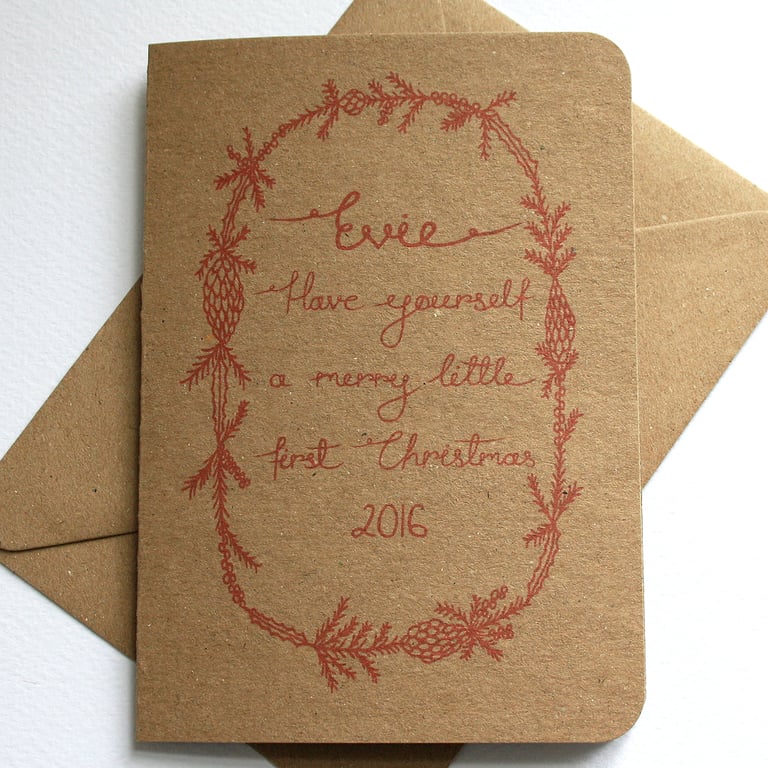 Evie
Have yourself
a merry little
first Christmas
2016